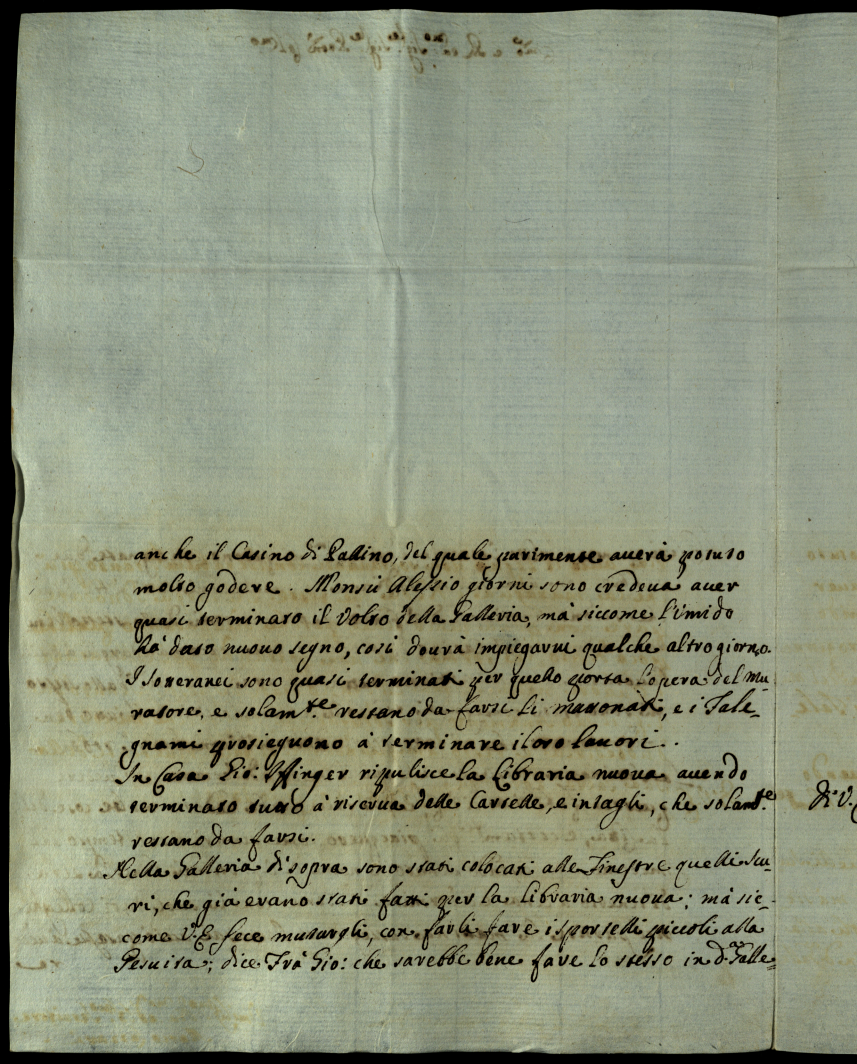 anche il Casino di Pallino, del quale parimente averà potuto
molto godere. Monsù Alessio giorni sono credeva aver
quasi terminato il Volto della Galleria, mà siccome l'umido
hà dato nuovo segno, così dovrà impiegarvi qualche altro giorno.
I Soteranei sono quasi terminati per quello porta l'opera del Mu-
ratore, e solam.te restano da farsi li mattonati, e i Fale-
gnami prosieguono à terminare i loro lavori.
In Casa Gio: Iffinger ripulisce la Libraria nuova avendo
terminato tutto à riserva delle Cartelle, e intagli, che solam.te
restano da farsi.
Nella Galleria di sopra sono stati colocati alle Finestre quelli Scu-
ri, che già erano stati fatti per la Libraria nuova; mà sic-
come V. E. fece mutargli, con farli fare i sportelli piccoli alla
Gesuita; dice Frà Gio: che sarebbe bene fare lo stesso in d.a Galle-
di V.